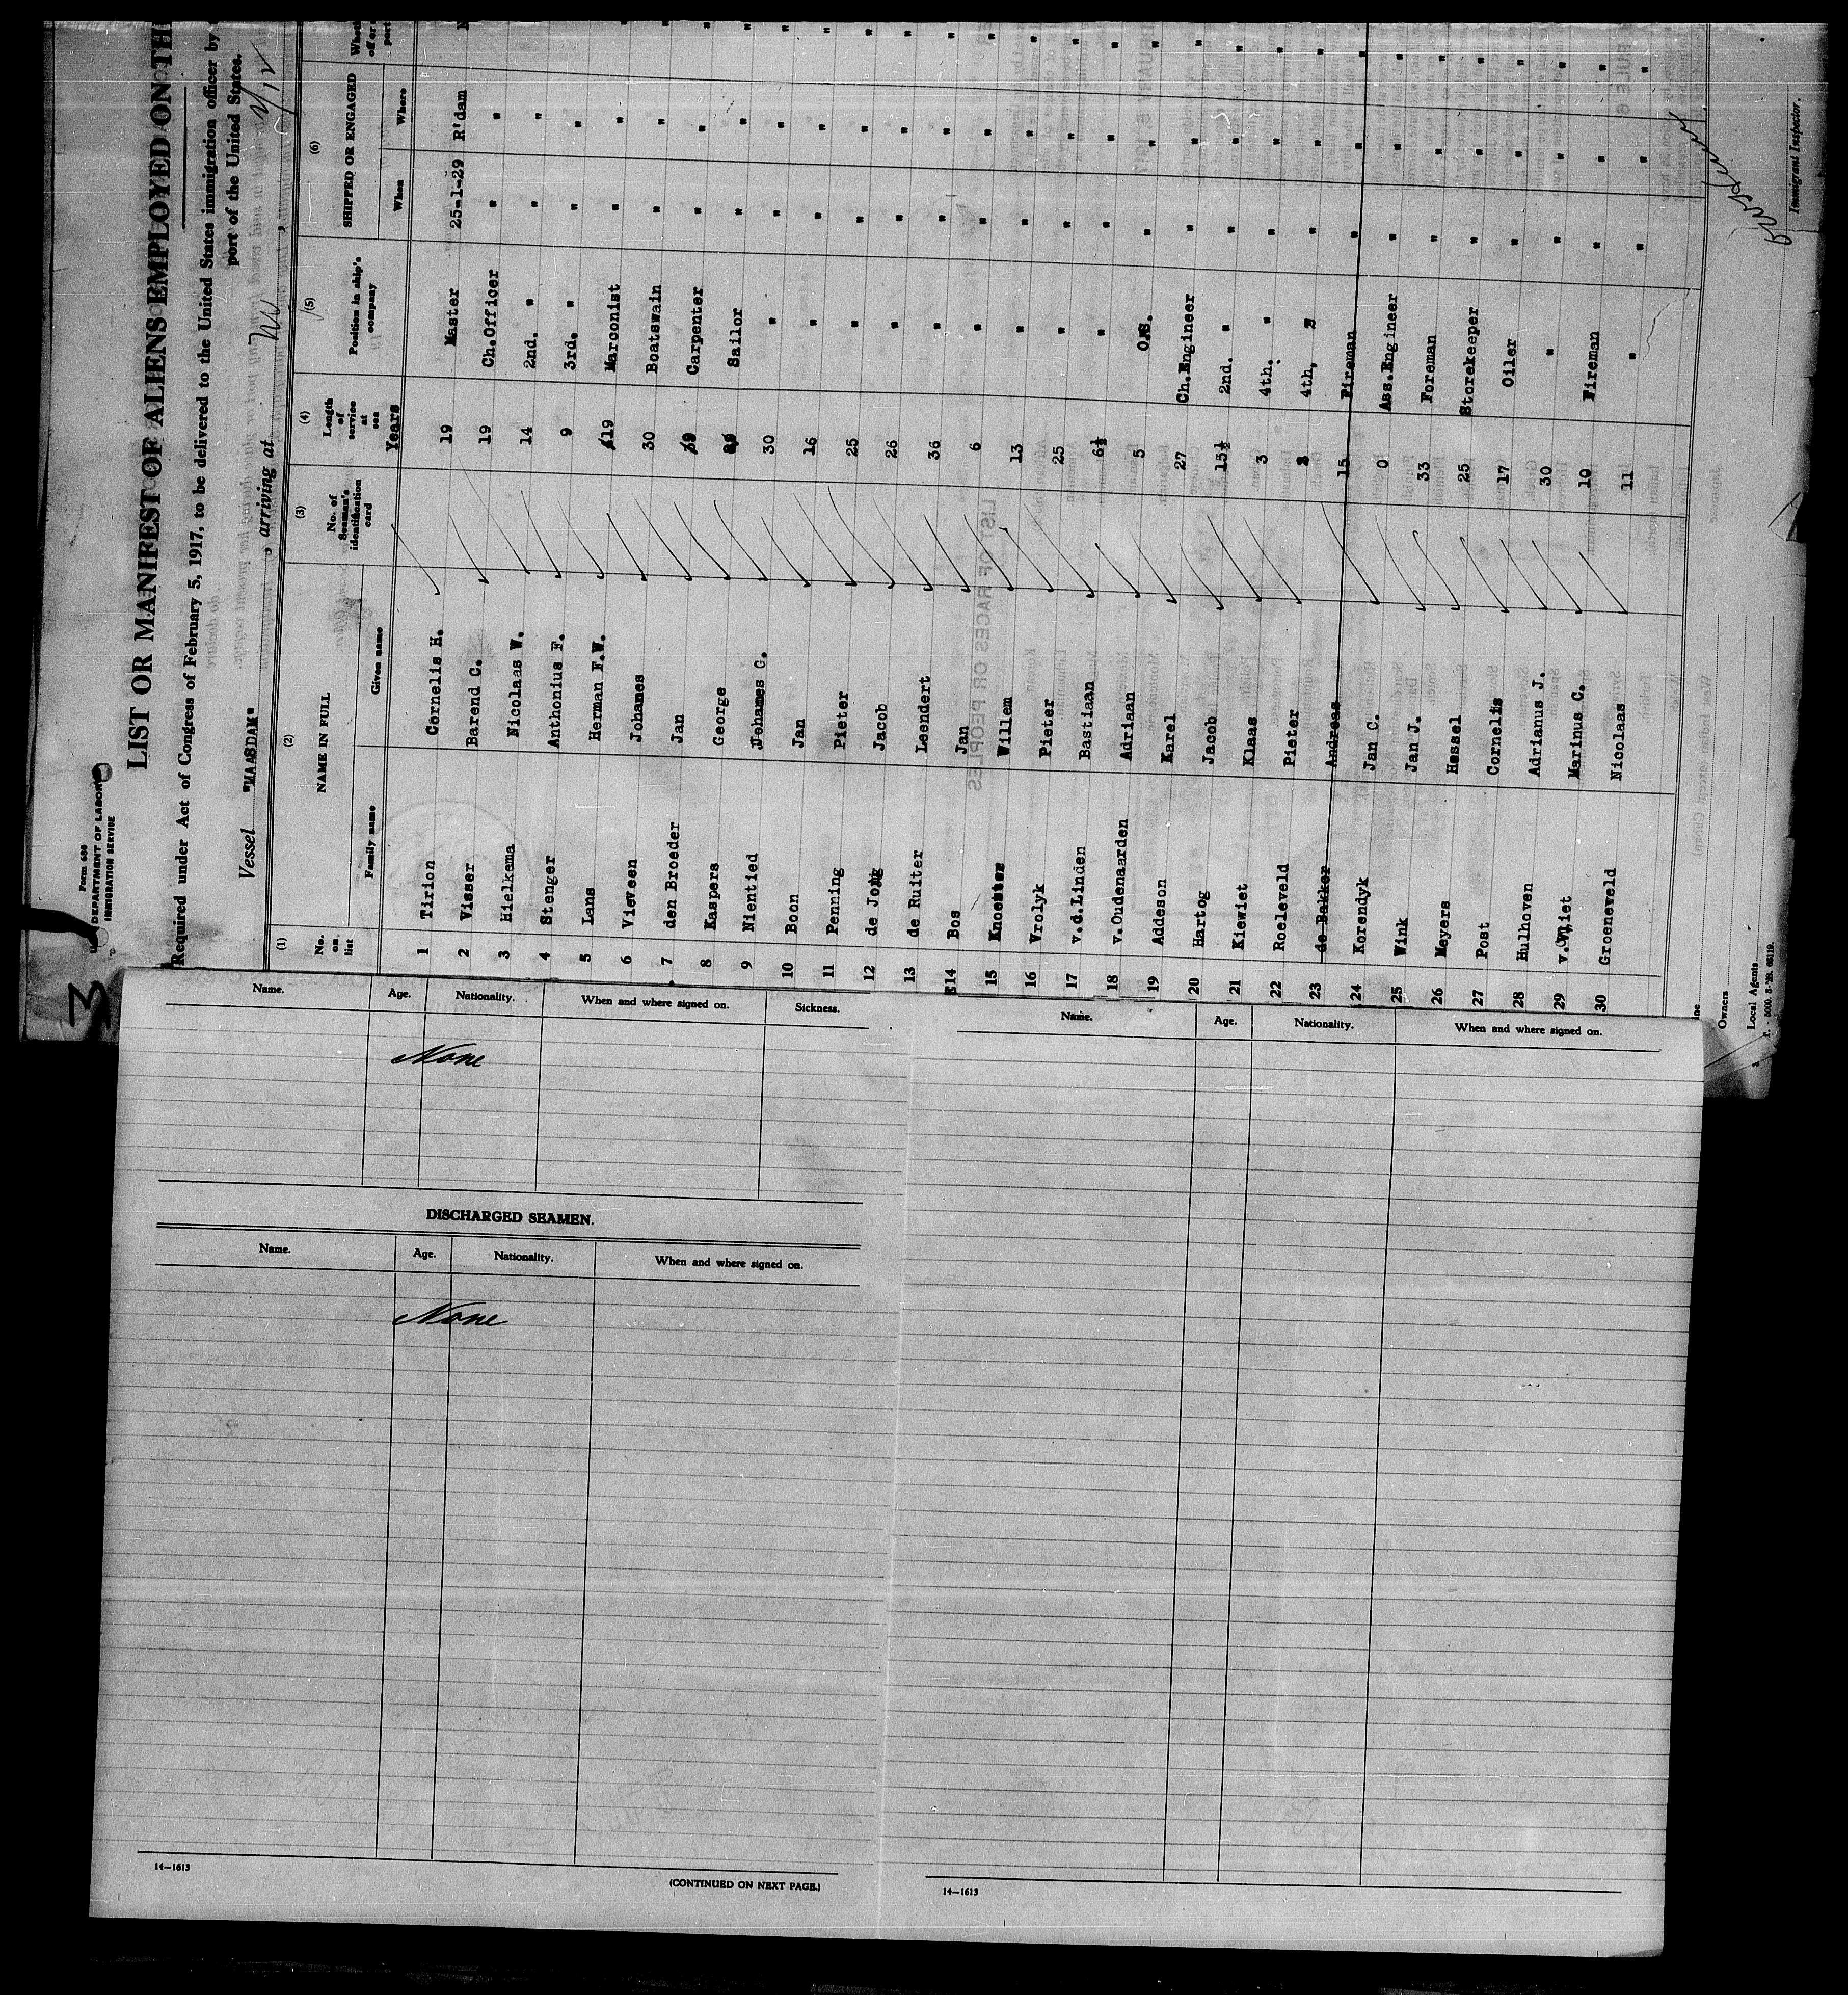 3
Form 689
U. S. DEPARTMENT OF LABOR
IMMIGRATION SERVICE
LIST OR MANIFEST OF ALIENS EMPLOYED ON TH
Required under Act of Congress of February 5, 1917, to be delivered to the United States immigration officer by
port of the United States.
Vessel "MAASDAM" , arriving at
(1) (2) (3) (4) (5) (6)
No. on list NAME IN FULL No. of Seaman's identification card Length of service at sea Position in ship's company SHIPPED OR ENGAGED
Family name Given name Years When Where
1 Tirion Cornelis H. 19 Master 25-1-29 R'dam
2 Visser Barend C. 19 Ch.Officer " "
3 Hielkema Nicolaas W. 14 2nd. " " "
4 Stenger Anthonius F. 9 3rd. " " "
5 Lans Herman F.W. 19 Marconist " "
6 Vieveen Johannes 30 Boatswain " "
7 den Broeder Jan Carpenter " "
8 Kaspers George Sailor " "
9 Nientied Johannes C. 30 " " "
10 Boon Jan 16 " " "
11 Penning Pieter 25 " " "
12 de Jong Jacob 26 " " "
13 de Ruiter Leendert 36 " " "
14 Bos Jan 6 " " "
15 Knoester Willem 13 " " "
16 Vrolyk Pieter 25 " " "
17 v.d.Linden Bastiaan 6½ " " "
18 v.Oudenaarden Adriaan 5 O.S. " "
19 Addeson Karel 27 Ch.Engineer " "
20 Hartog Jacob 15½ 2nd. " " "
21 Kiewiet Klaas 3 4th. " " "
22 Roeleveld Pieter 4th, " "
23 de Bakker Andreas 15 Fireman " "
24 Korendyk Jan C. 0 Ass.Engineer " "
25 Wink Jan J. 33 Foreman " "
26 Meyers Hessel 25 Storekeeper " "
27 Post Cornelis 17 Oiler " "
28 Hulhoven Adrianus J. 30 " " "
29 v.Vliet Marinus C. 10 Fireman " "
30 Groeneveld Nicolaas 11 " " "
Owners
Local Agents
Immigrant Inspector.
Name. Age. Nationality. When and where signed on. Sickness.
None
DISCHARGED SEAMEN.
Name. Age. Nationality. When and where signed on.
None
14—1613
(CONTINUED ON NEXT PAGE.)
Name. Age. Nationality. When and where signed on.
14—1613